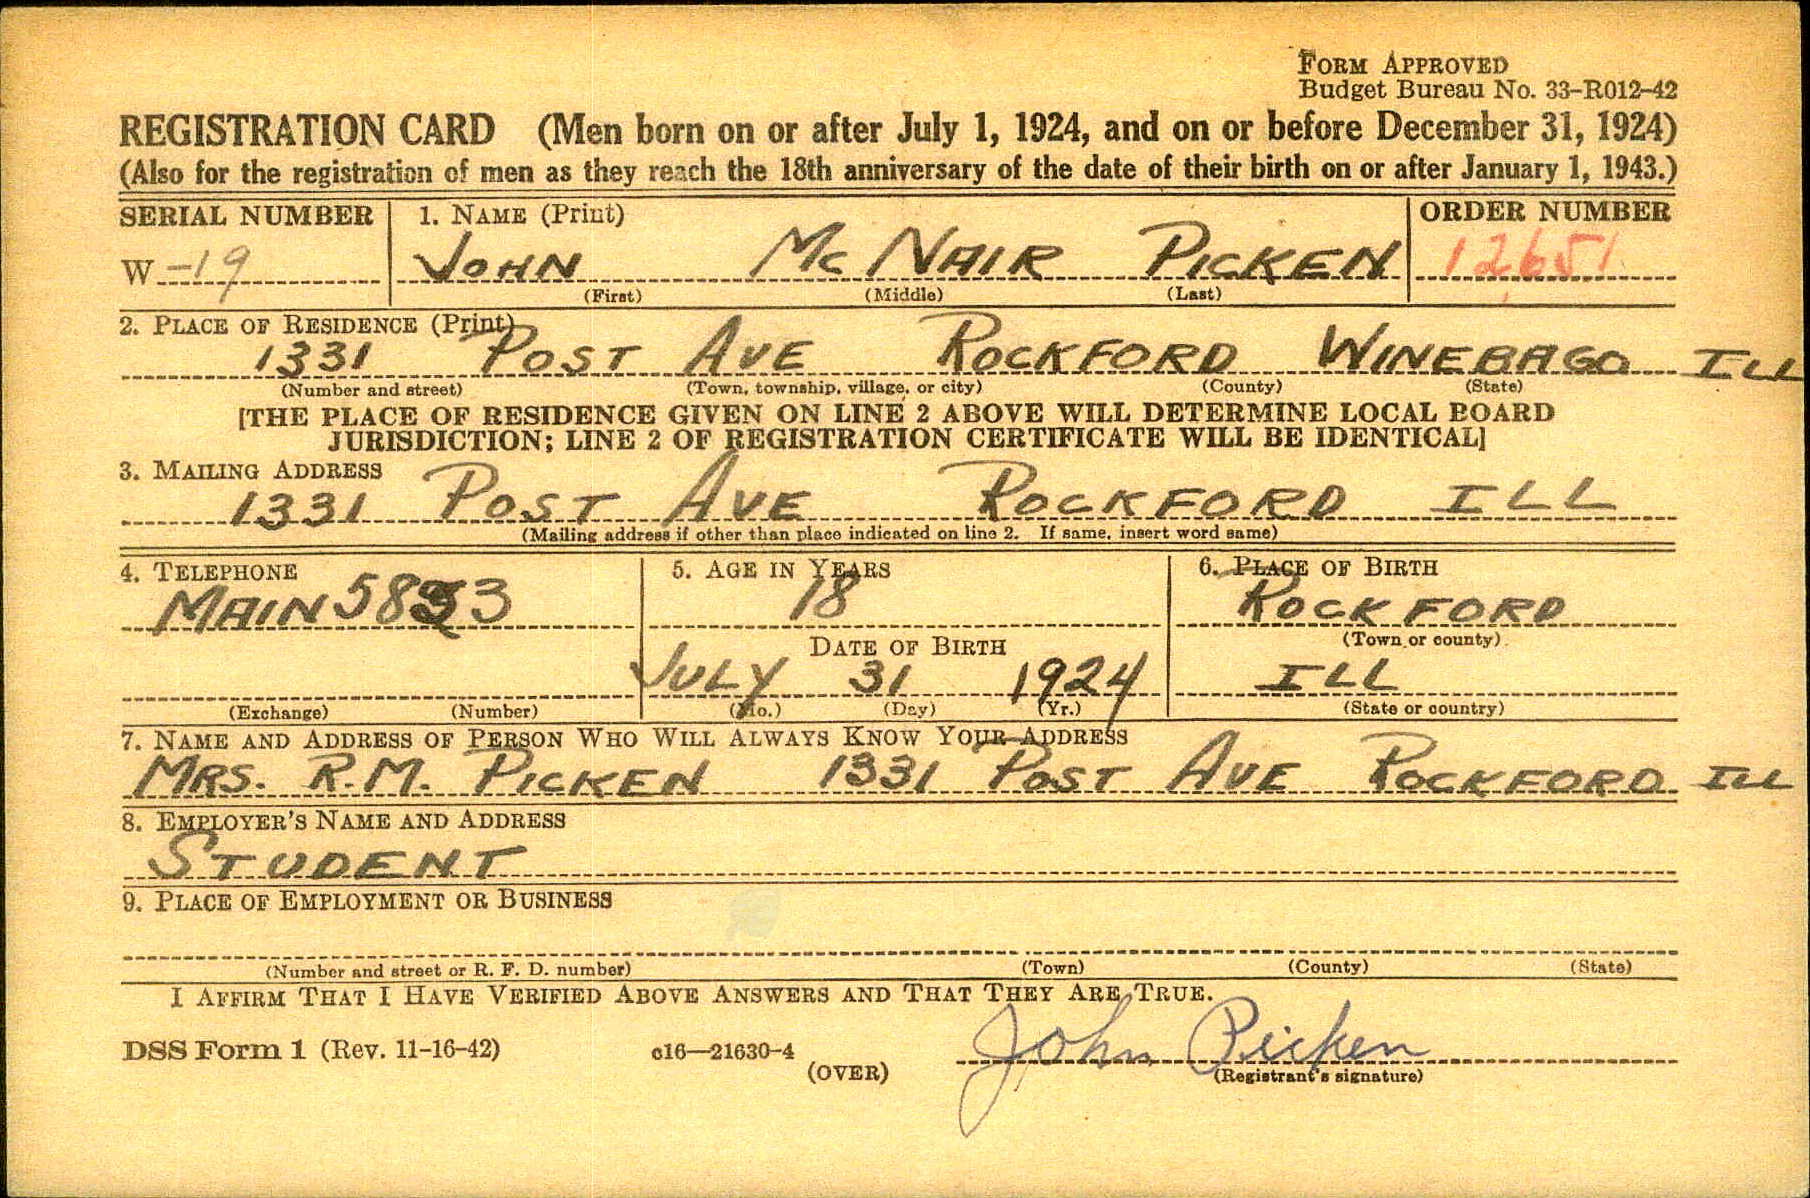 FORM APPROVED
Budget Bureau No. 33-R012-42
REGISTRATION CARD (Men born on or after July 1, 1924, and on or before December 31, 1924)
(Also for the registration of men as they reach the 18th anniversary of the date of their birth on or after January 1, 1943.)
SERIAL NUMBER 1. NAME (Print) ORDER NUMBER
W -19 JOHN MC NAIR PICKEN 12651
(First) (Middle) (Last)
2. PLACE OF RESIDENCE (Print)
1331 POST AVE ROCKFORD WINEBAGO ILL
(Number and street) (Town, township, village, or city) (County) (State)
[THE PLACE OF RESIDENCE GIVEN ON LINE 2 ABOVE WILL DETERMINE LOCAL BOARD
JURISDICTION; LINE 2 OF REGISTRATION CERTIFICATE WILL BE IDENTICAL]
3. MAILING ADDRESS
1331 POST AVE ROCKFORD ILL
(Mailing address if other than place indicated on line 2. If same, insert word same)
4. TELEPHONE 5. AGE IN YEARS 6. PLACE OF BIRTH
MAIN 18 ROCKFORD
(Town or county)
DATE OF BIRTH
JULY 31 1924 ILL
(Exchange) (Number) (Mo.) (Day) (Yr.) (State or country)
7. NAME AND ADDRESS OF PERSON WHO WILL ALWAYS KNOW YOUR ADDRESS
MRS. R.M. PICKEN 1331 POST AVE ROCKFORD ILL
8. EMPLOYER'S NAME AND ADDRESS
STUDENT
9. PLACE OF EMPLOYMENT OR BUSINESS
(Number and street or R. F. D. number) (Town) (County) (State)
I AFFIRM THAT I HAVE VERIFIED ABOVE ANSWERS AND THAT THEY ARE TRUE.
DSS Form 1 (Rev. 11-16-42) c16—21630-4 (OVER) John Picken
(Registrant's signature)